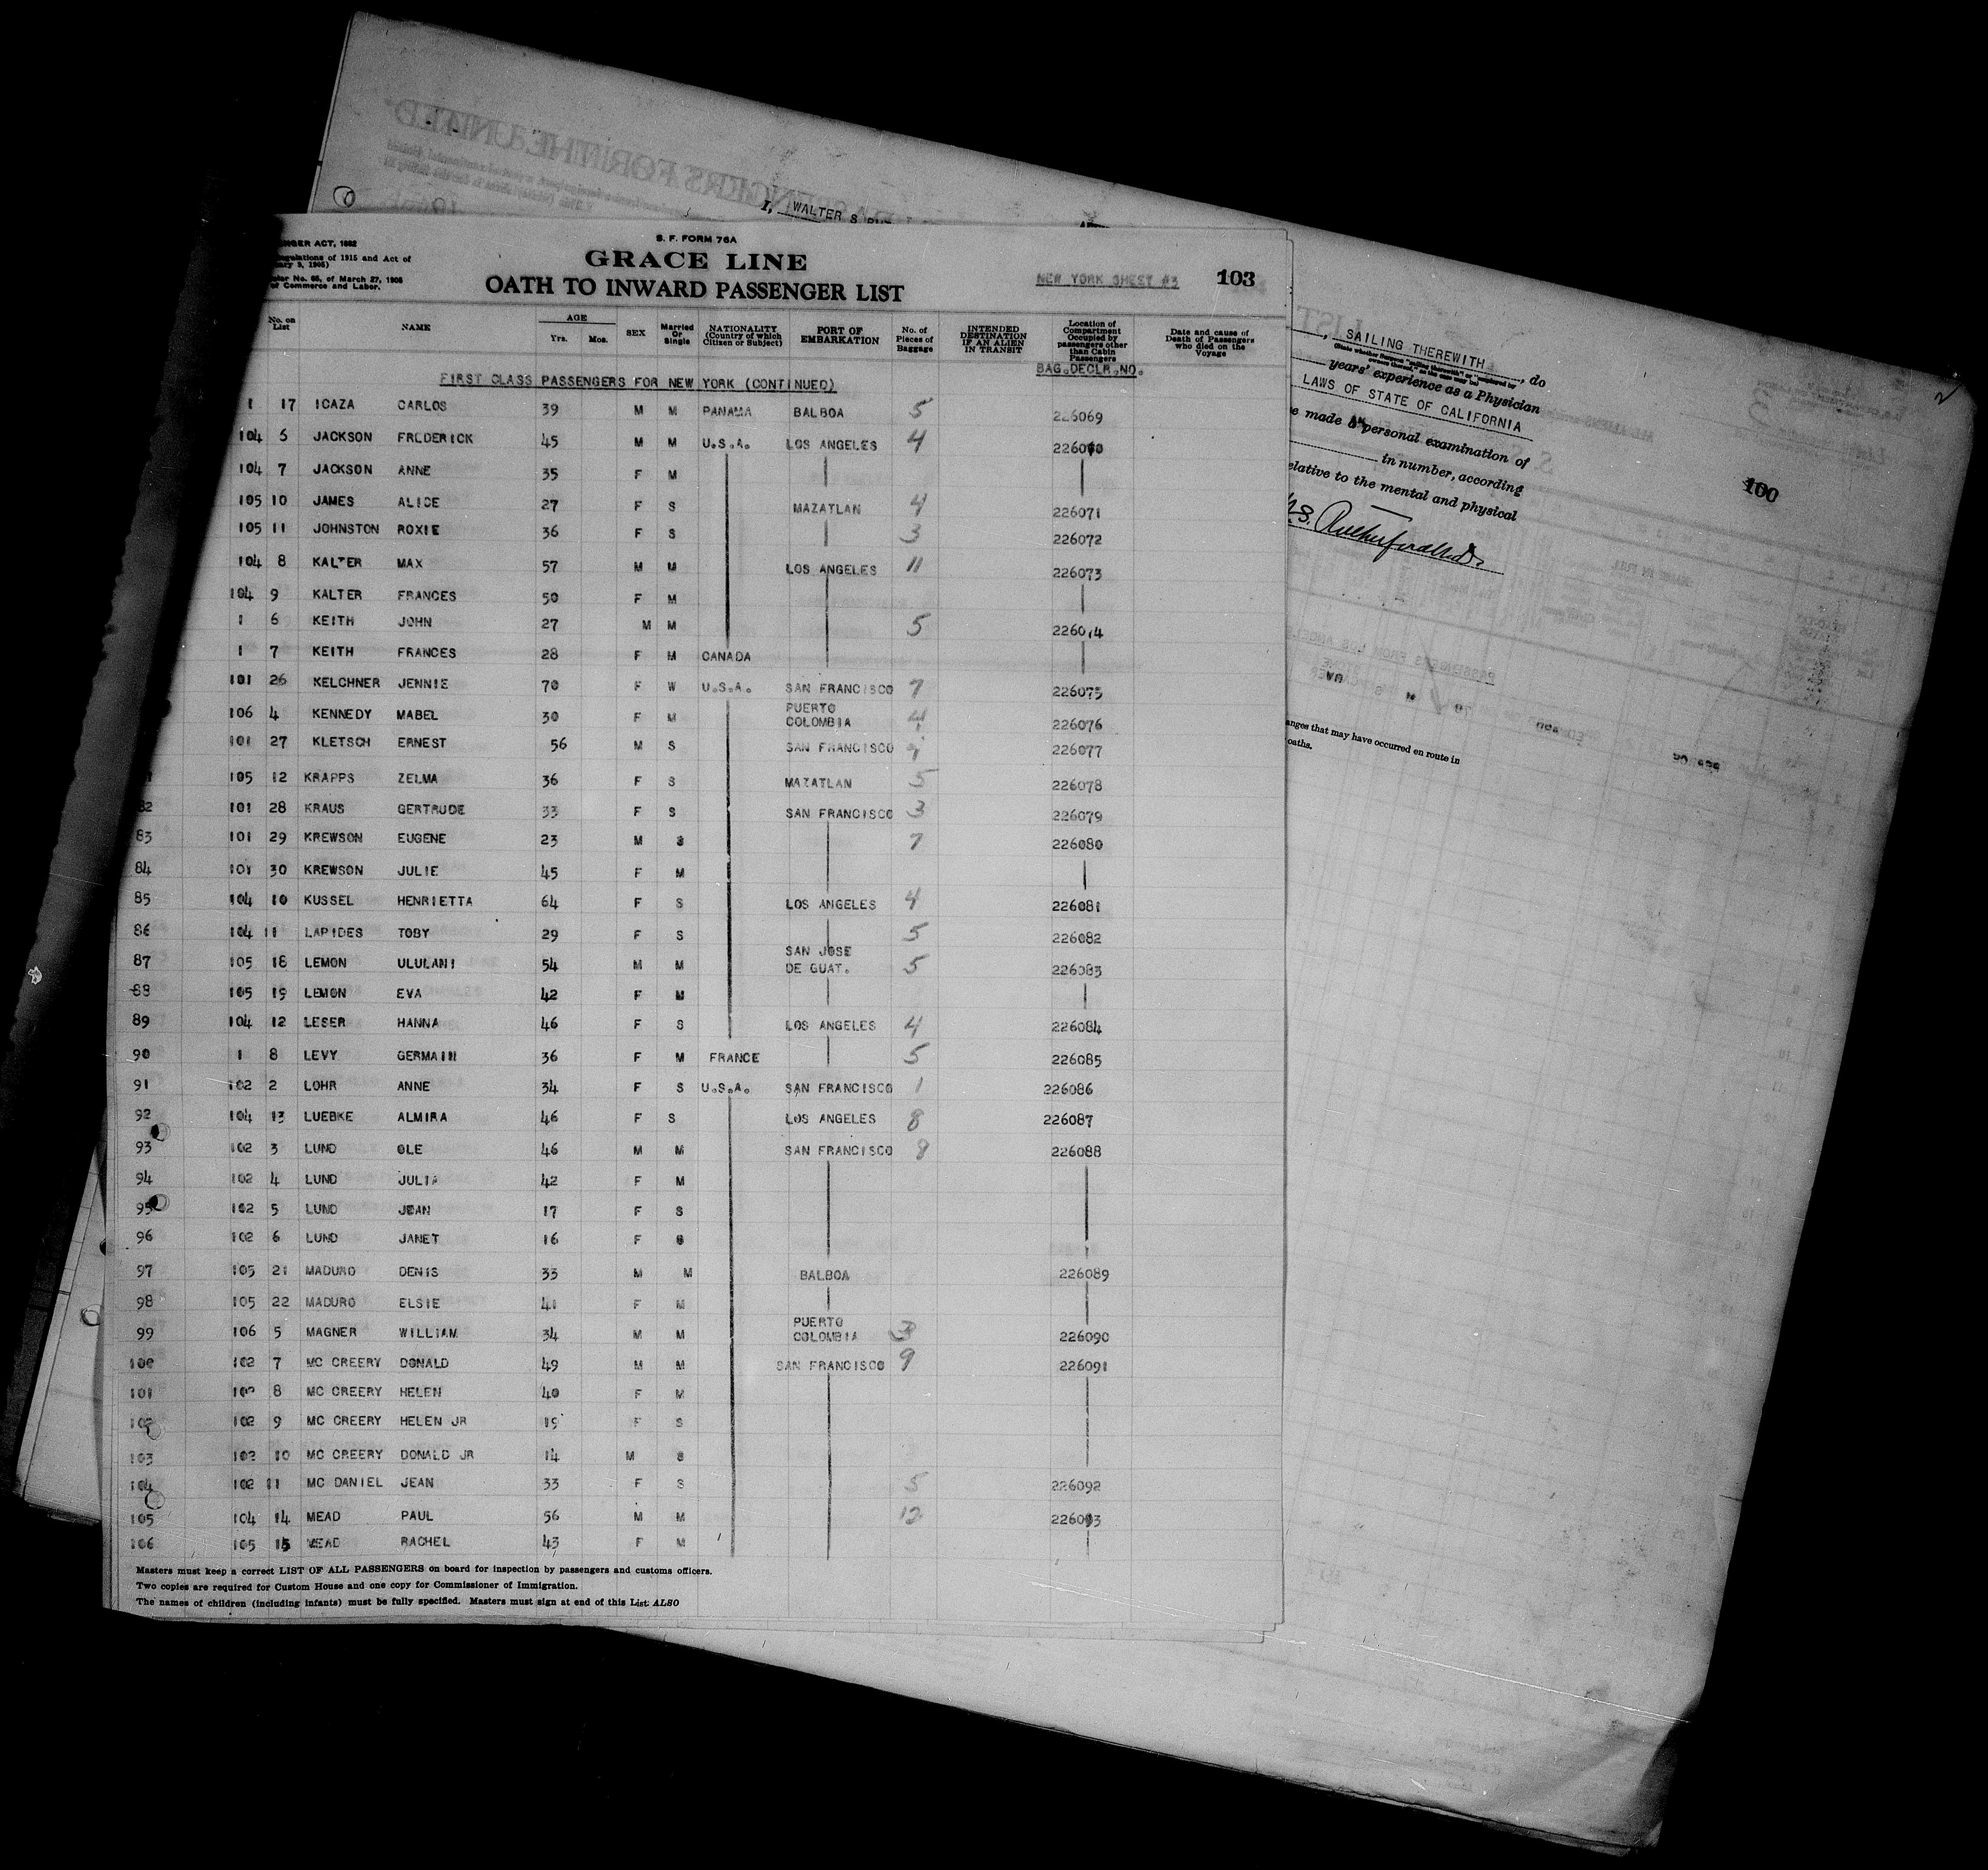 I, WALTER S
NGER ACT, 1882
egulations of 1915 and Act of
ary 3, 1905)
ular No. 65, of March 27, 1906
of Commerce and Labor.
S. F. FORM 76A
GRACE LINE
OATH TO INWARD PASSENGER LIST
NEW YORK SHEET #3
103
No. on List NAME AGE Yrs. Mos. SEX Married Or Single NATIONALITY (Country of which Citizen or Subject) PORT OF EMBARKATION No. of Pieces of Baggage INTENDED DESTINATION IF AN ALIEN IN TRANSIT Location of Compartment Occupied by passengers other than Cabin Passengers Date and cause of Death of Passengers who died on the Voyage
BAG.DECLR.NO.
FIRST CLASS PASSENGERS FOR NEW YORK (CONTINUED)
1 17 ICAZA CARLOS 39 M M PANAMA BALBOA 5 226069
104 6 JACKSON FREDERICK 45 M M U.S.A. LOS ANGELES 4 226070
104 7 JACKSON ANNE 35 F M
105 10 JAMES ALICE 27 F S MAZATLAN 4 226071
105 11 JOHNSTON ROXIE 36 F S 3 226072
104 8 KALTER MAX 57 M M LOS ANGELES 11 226073
104 9 KALTER FRANCES 50 F M
1 6 KEITH JOHN 27 M M 5 226074
1 7 KEITH FRANCES 28 F M CANADA
101 26 KELCHNER JENNIE 70 F W U.S.A. SAN FRANCISCO 7 226075
106 4 KENNEDY MABEL 30 F M PUERTO COLOMBIA 4 226076
101 27 KLETSCH ERNEST 56 M S SAN FRANCISCO 226077
105 12 KRAPPS ZELMA 36 F S MAZATLAN 5 226078
82 101 28 KRAUS GERTRUDE 33 F S SAN FRANCISCO 3 226079
83 101 29 KREWSON EUGENE 23 M S 7 226080
84 101 30 KREWSON JULIE 45 F M
85 104 10 KUSSEL HENRIETTA 64 F S LOS ANGELES 4 226081
86 104 11 LAPIDES TOBY 29 F S 5 226082
87 105 18 LEMON ULULANI 54 M M SAN JOSE DE GUAT. 5 226083
88 105 19 LEMON EVA 42 F M
89 104 12 LESER HANNA 46 F S LOS ANGELES 4 226084
90 1 8 LEVY GERMAIN 36 F M FRANCE 5 226085
91 102 2 LOHR ANNE 34 F S U.S.A. SAN FRANCISCO 1 226086
92 104 13 LUEBKE ALMIRA 46 F S LOS ANGELES 8 226087
93 102 3 LUND OLE 46 M M SAN FRANCISCO 9 226088
94 102 4 LUND JULIA 42 F M
95 102 5 LUND JEAN 17 F S
96 102 6 LUND JANET 16 F S
97 105 21 MADURO DENIS 33 M M BALBOA 226089
98 105 22 MADURO ELSIE 41 F M
99 106 5 MAGNER WILLIAM 34 M M PUERTO COLOMBIA 3 226090
100 102 7 MC CREERY DONALD 49 M M SAN FRANCISCO 9 226091
101 102 8 MC CREERY HELEN 40 F M
102 102 9 MC CREERY HELEN JR 19 F S
103 102 10 MC CREERY DONALD JR 14 M S
104 102 11 MC DANIEL JEAN 33 F S 5 226092
105 104 14 MEAD PAUL 56 M M 12 226093
106 105 15 MEAD RACHEL 43 F M
Masters must keep a correct LIST OF ALL PASSENGERS on board for inspection by passengers and customs officers.
Two copies are required for Custom House and one copy for Commissioner of Immigration.
The names of children (including infants) must be fully specified. Masters must sign at end of this List ALSO
SAILING THEREWITH, do
years' experience as a Physician
LAWS OF STATE OF CALIFORNIA
e made a personal examination of
in number, according
elative to the mental and physical
S. Rutherford M.D.
100
anges that may have occurred en route in
oaths.